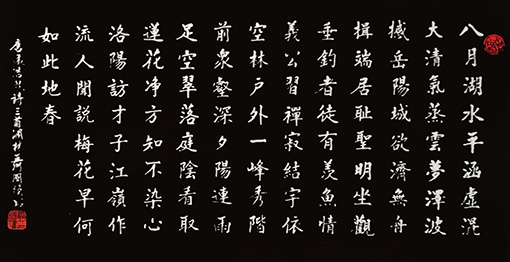 八月湖水平涵虛混
大清氣蒸雲夢澤波
撼岳陽城欲濟無舟
楫端居耻聖明坐觀
垂釣者徒有羨魚情
義公習禪寂結宇依
空林戶外一峰秀階
前衆壑深夕陽連雨
足空翠落庭陰看取
蓮花净方知不染心
洛陽訪才子江嶺作
流人聞說梅花早何
如此地春
唐孟浩然詩三首